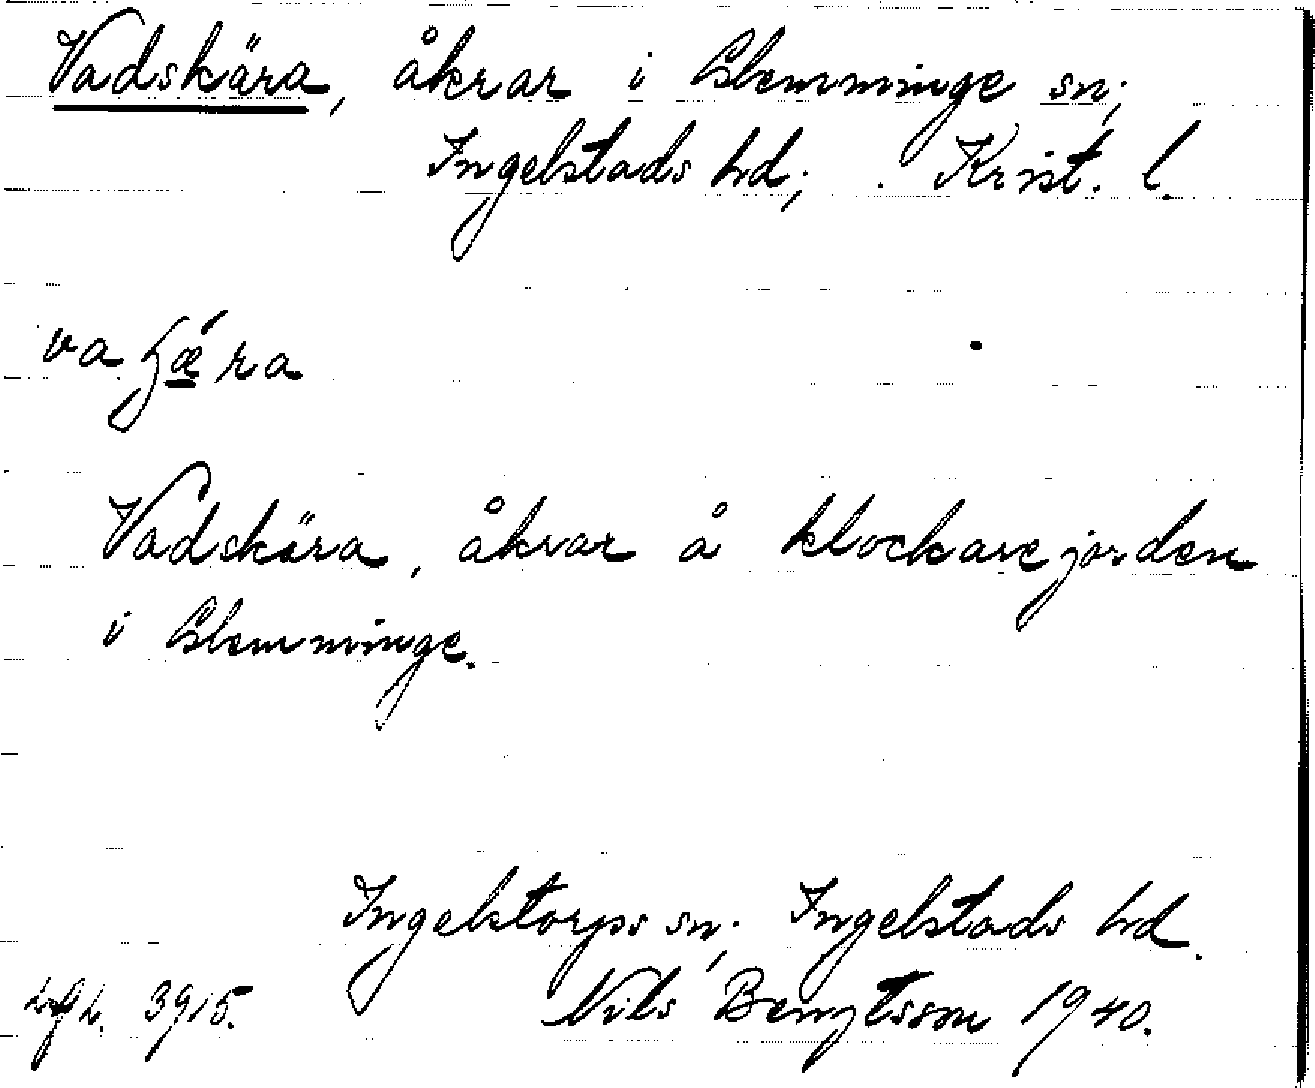 Vadskära, åkrar i Glemminge sn;
Ingelstads hd; Krist. l.
Vadskära, åkrar å klockarejorden
i Glemminge.
Ingelstorps sn; Ingelstads hd.
3915. Nils Bengtsson 1940.